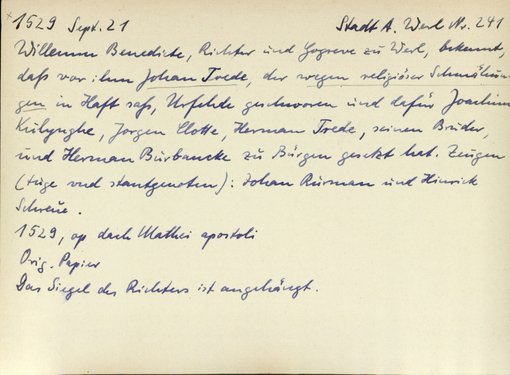 * 1529 Sept. 21 Stadt A. Werl Nr. 241
Willemm Benedicte, Richter und Gogreve zu Werl, bekennt,
daß vor ihm Johan Trede, der wegen religiöser Schmähun-
gen in Haft saß, Urfehde geschworen und dafür Joachim
Kulynghe, Jorgen Clotte, Herman Trede, seinen Bruder,
und Herman Burbancke zu Bürgen gesetzt hat. Zeugen
(tüge vnd stantgenoten): Johan Rurman und Hinrick
Schreue.
1529, op dach Mathei apostoli
Orig. Papier
Das Siegel des Richters ist angehängt.